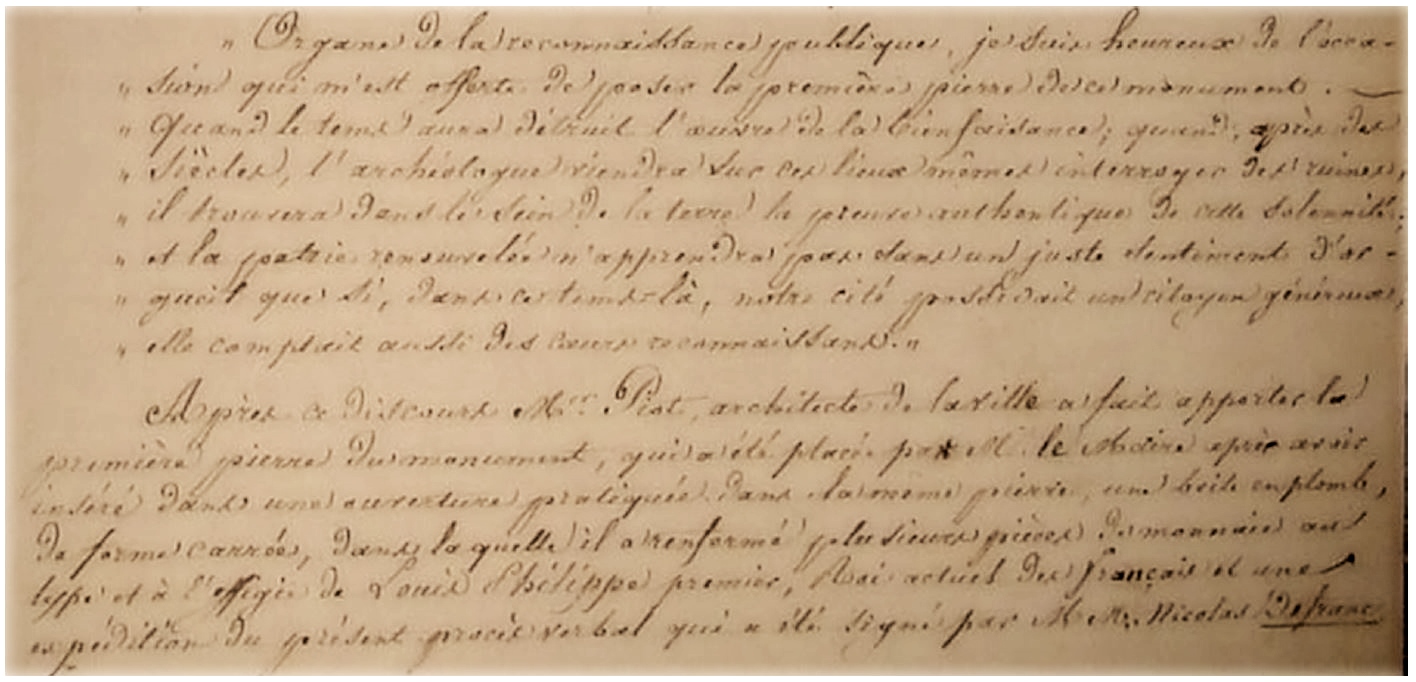 " Organe de la reconnaissance publique, je suis heureux de l'occa-
" sion qui m'est offerte de poser la première pierre de ce monument. —
" Quand le tems aura détruit l'œuvre de la bienfaisance; quand, après des
" siècles, l'archéologue viendra sur ces lieux mêmes interroger des ruines,
" il trouvera dans le sein de la terre la preuve authentique de cette solennité;
" et la patrie renouvelée n'apprendra pas sans un juste sentiment d'or-
" gueil que si, dans ce tems-là, notre cité possédait un citoyen généreux,
" elle comptait aussi des cœurs reconnaissans. "
Après ce discours Mr. Piot, architecte de la ville a fait apporter la
première pierre du monument, qui a été placée par M. le Maire après avoir
inséré dans une ouverture pratiquée dans la même pierre, une boite en plomb,
de forme carrée, dans laquelle il a renfermé plusieurs pièces de monnaie au
type et à l'effigie de Louis Philippe premier, Roi actuel des français et une
expédition du présent procès verbal qui a été signé par M.M. Nicolas Defranc